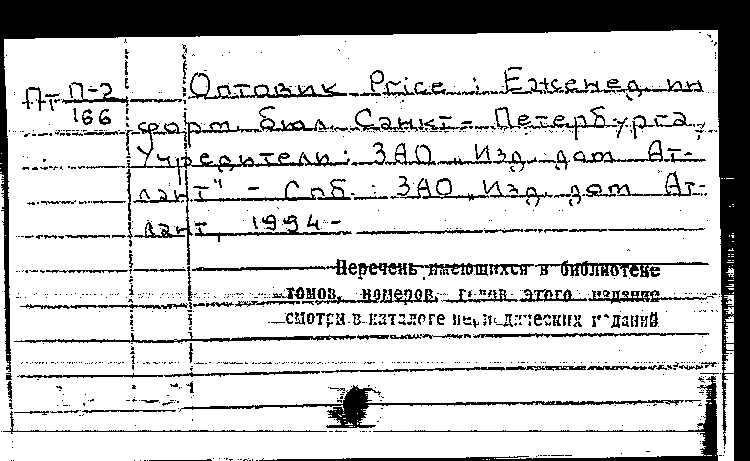 Пт П-2 Оптовик Price : Еженед. ин
166 форм. бюл. Санкт-Петербурга,
Учредители: ЗАО „Изд. дом Ат-
лант" – Спб. : ЗАО „Изд. дом Ат-
лант, 1994 –
Перечень имеющихся в библиотеке
томов, номеров, годов этого издание
смотри в каталоге периодических изданий